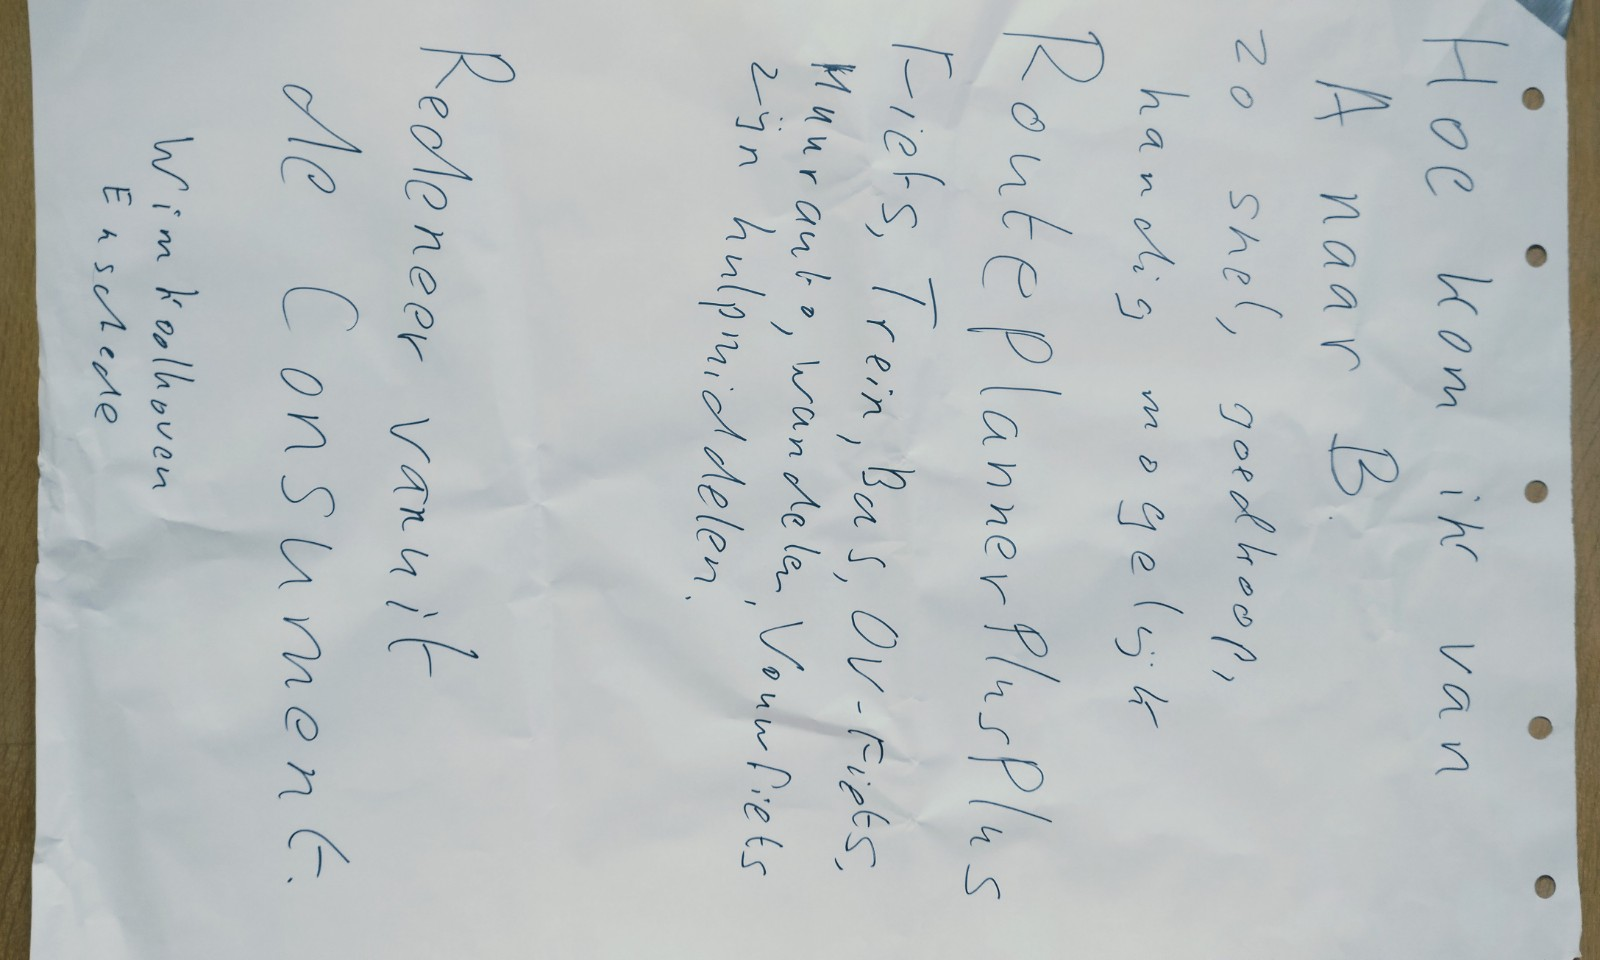 Hoe kom ik van
A naar B.
zo snel, goedkoop,
handig mogelijk
RoutePlannerPlusPlus
Fiets, Trein, Bus, OV-Fiets,
Huurauto, wandelen, Vouwfiets
zijn hulpmiddelen.
Redeneer vanuit
de Consument.
Wim Koolhoven
Enschede